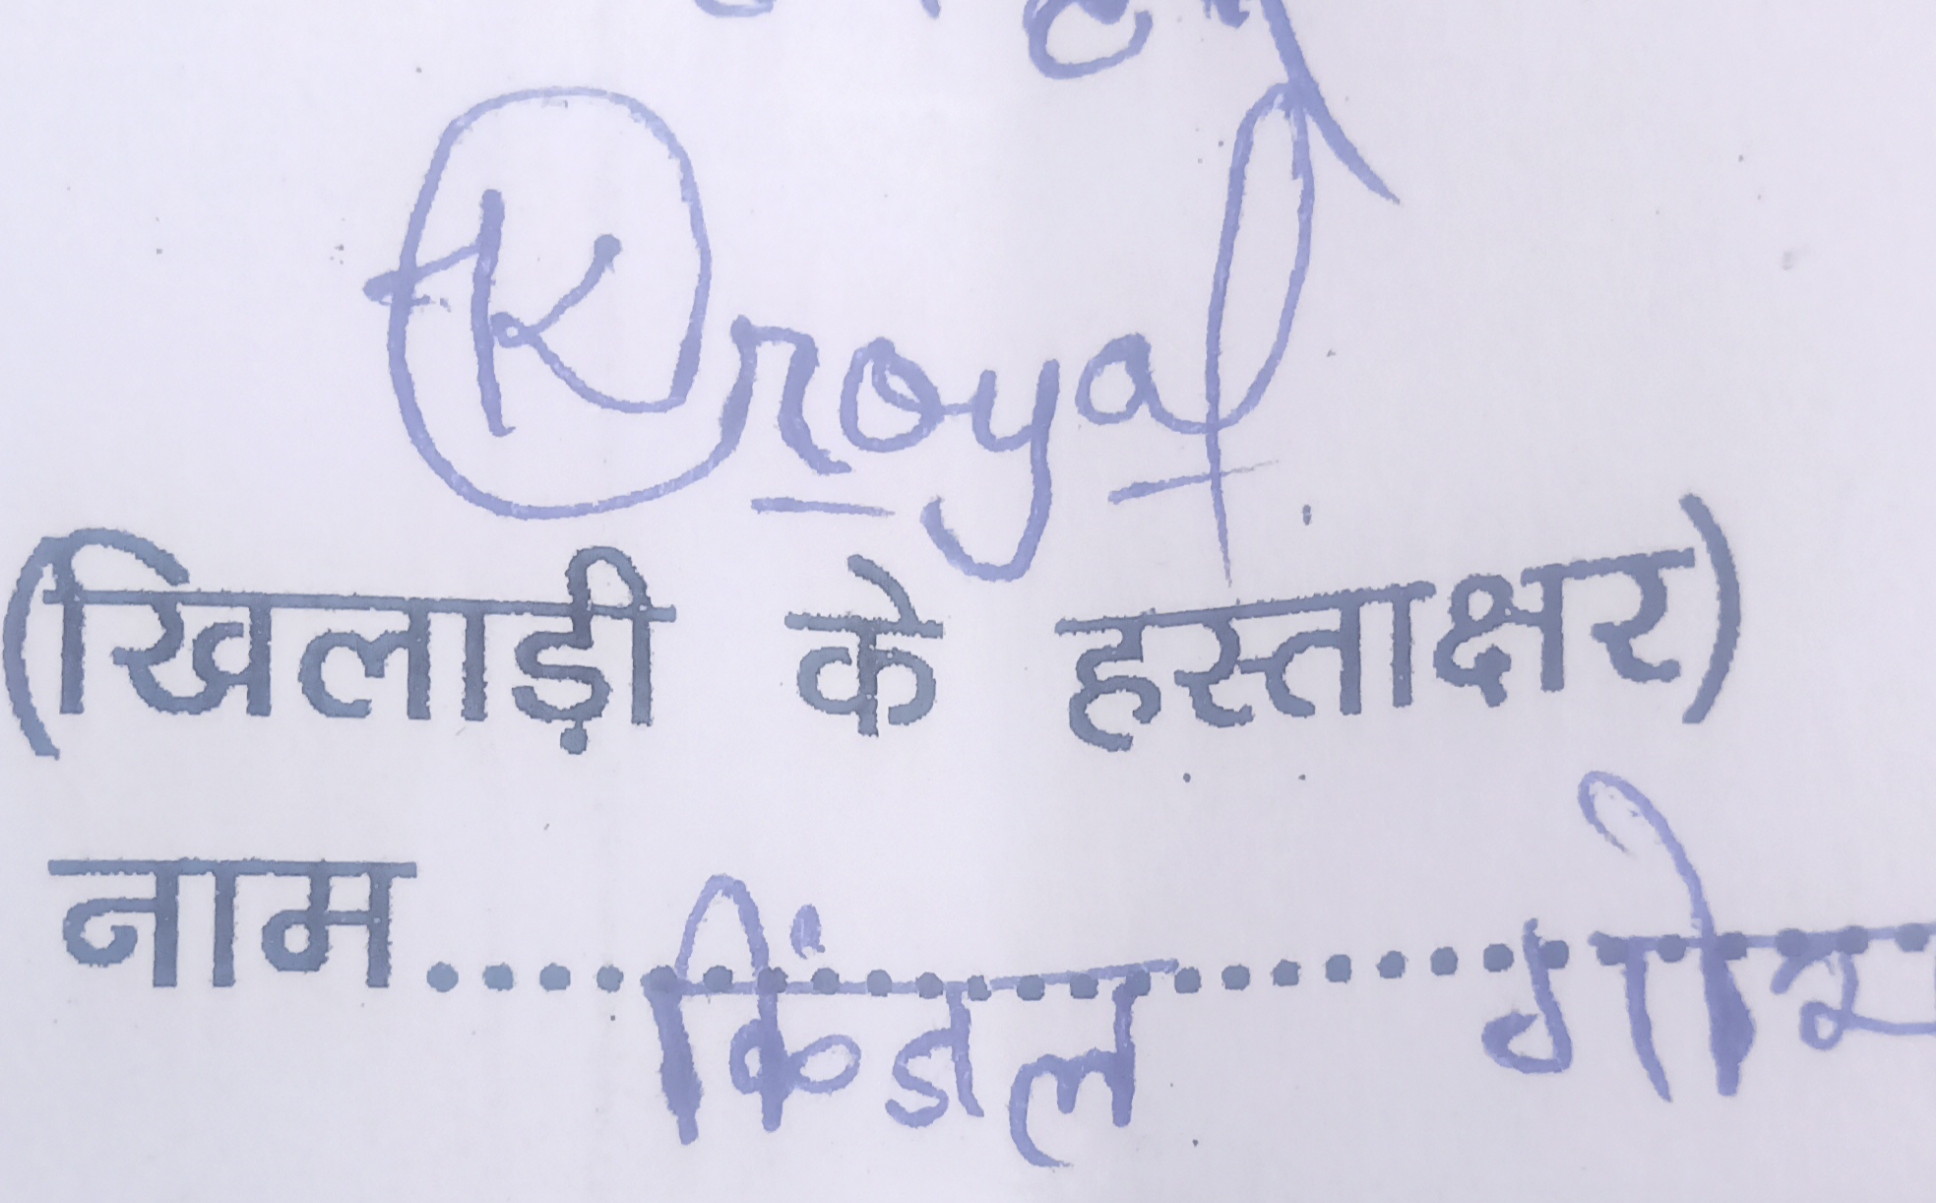 Kroyal
(खिलाड़ी के हस्ताक्षर)
नाम.......... किंडल